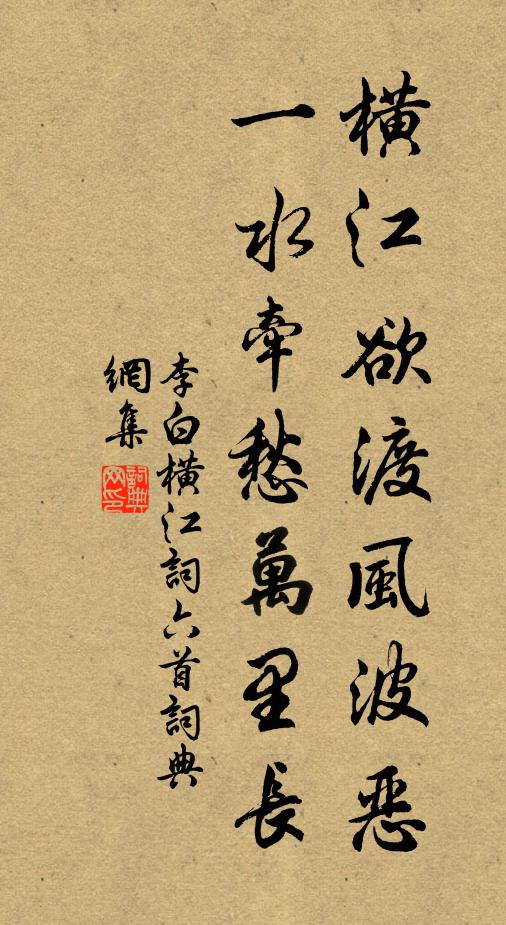 橫江欲渡風波惡
一水牽愁萬里長
李白橫江詞六首詞典
網集
詞典
網印